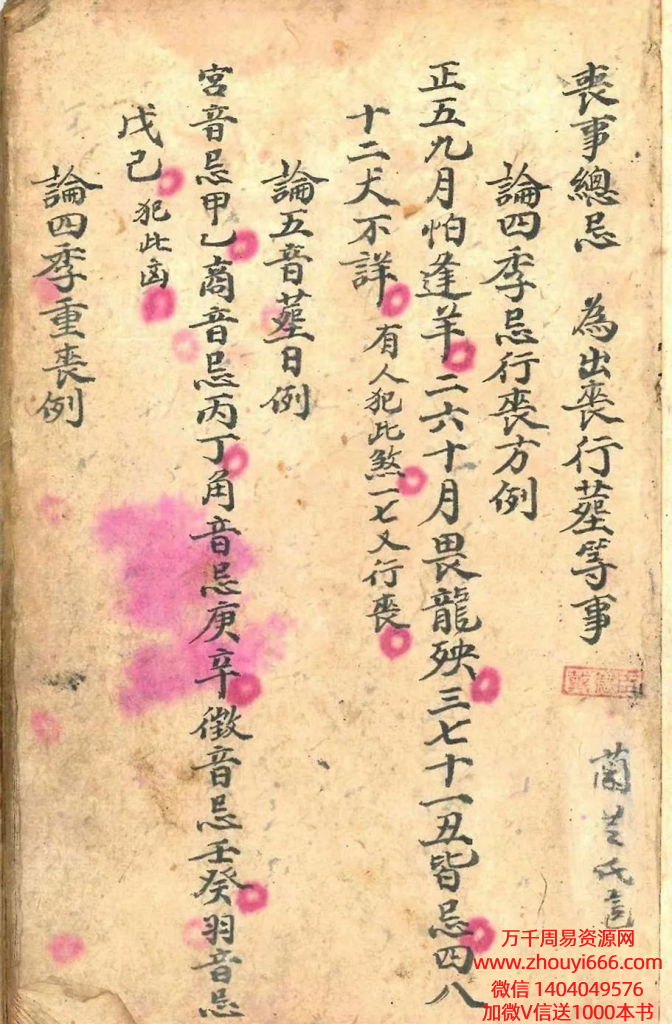 喪事總忌　為出喪行塟等事
論四季忌行喪方例
正五九月怕逢羊二六十月畏龍殃三七十一丑皆忌四八
十二犬不詳有人犯此煞一七又行喪
論五音塟日例
宮音忌甲乙商音忌丙丁角音忌庚辛徵音忌壬癸羽音忌
戊己犯此凶
論四季重喪例
蘭
氏
万千周易资源网
www.zhouyi666.com
微信 1404049576
加微V信送1000本书